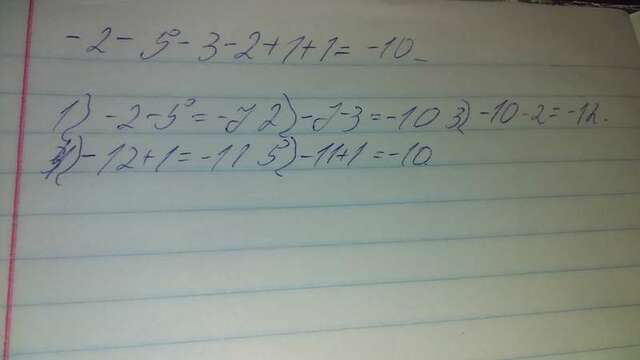 -2-5-3-2+1+1=-10
1) -2-5=-7 2) -7-3=-10 3) -10-2=-12.
4) -12+1=-11 5) -11+1=-10